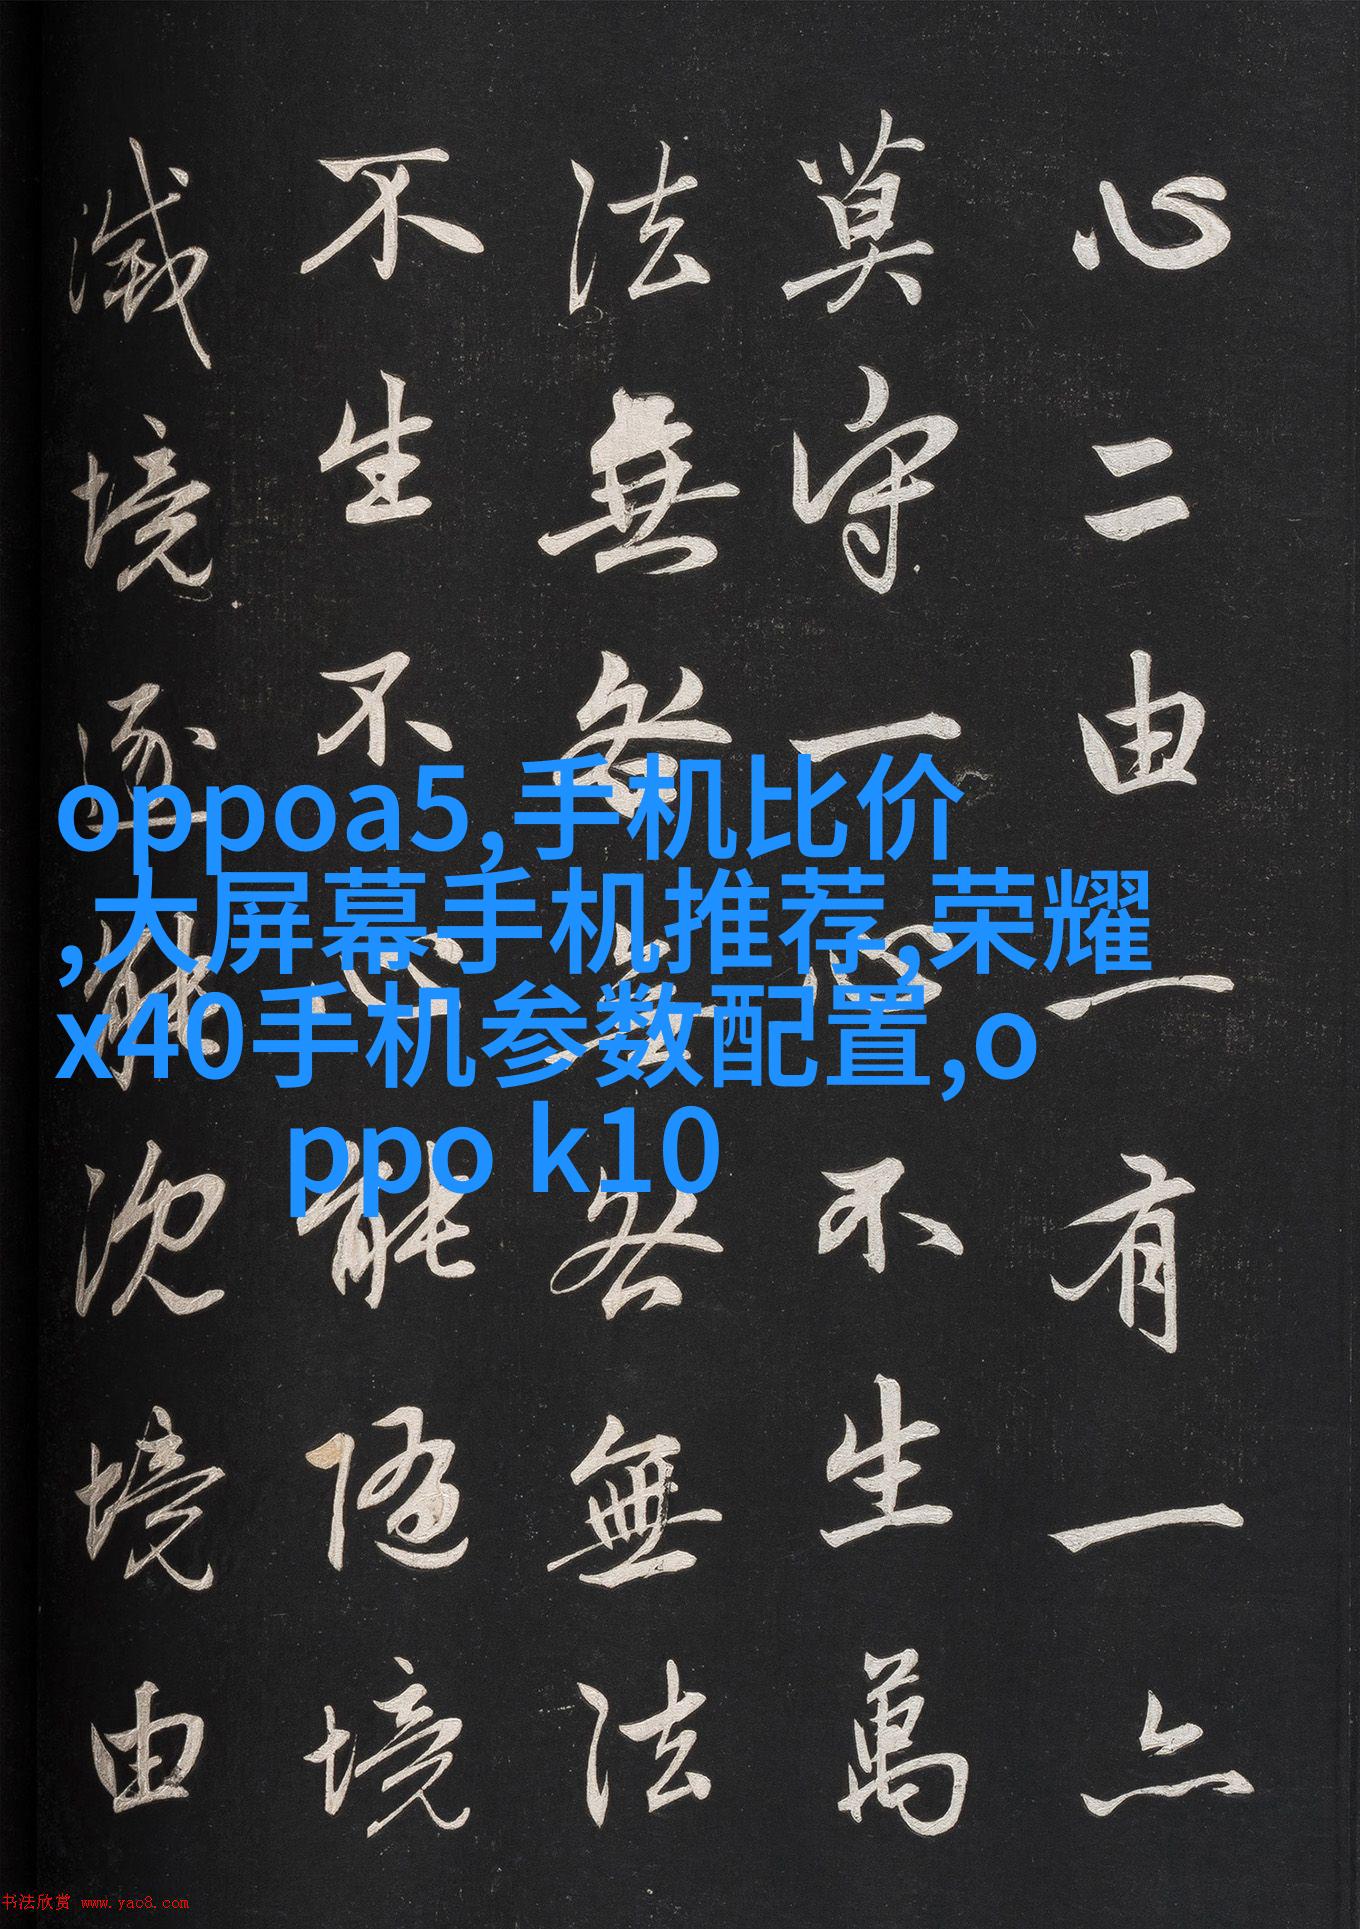 心二由一有一亦
莫守一心不生萬
法無咎無咎無法
不生不心能隨境
滅境逐能沈境由
oppoa5,手机比价
,大屏幕手机推荐,荣耀
x40手机参数配置,o
ppo k10
书法欣赏 www.yac8.com